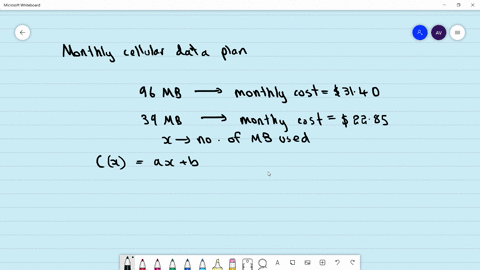 Microsoft Whiteboard
AV
Monthly cellular data plan
96 MB → monthly cost = $31.40
39 MB → monthy cost = $22.85
x → no. of MB used
C(x) = ax + b